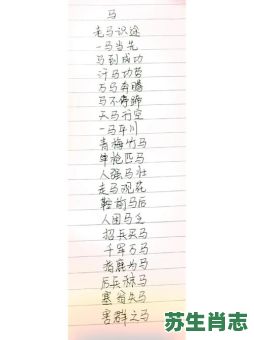 马
老马识途
一马当先
马到成功
汗马功劳
万马奔腾
马不停蹄
天马行空
一马平川
青梅竹马
单枪匹马
人强马壮
走马观花
鞍前马后
人困马乏
招兵买马
千军万马
指鹿为马
厉兵秣马
塞翁失马
害群之马
苏生肖志